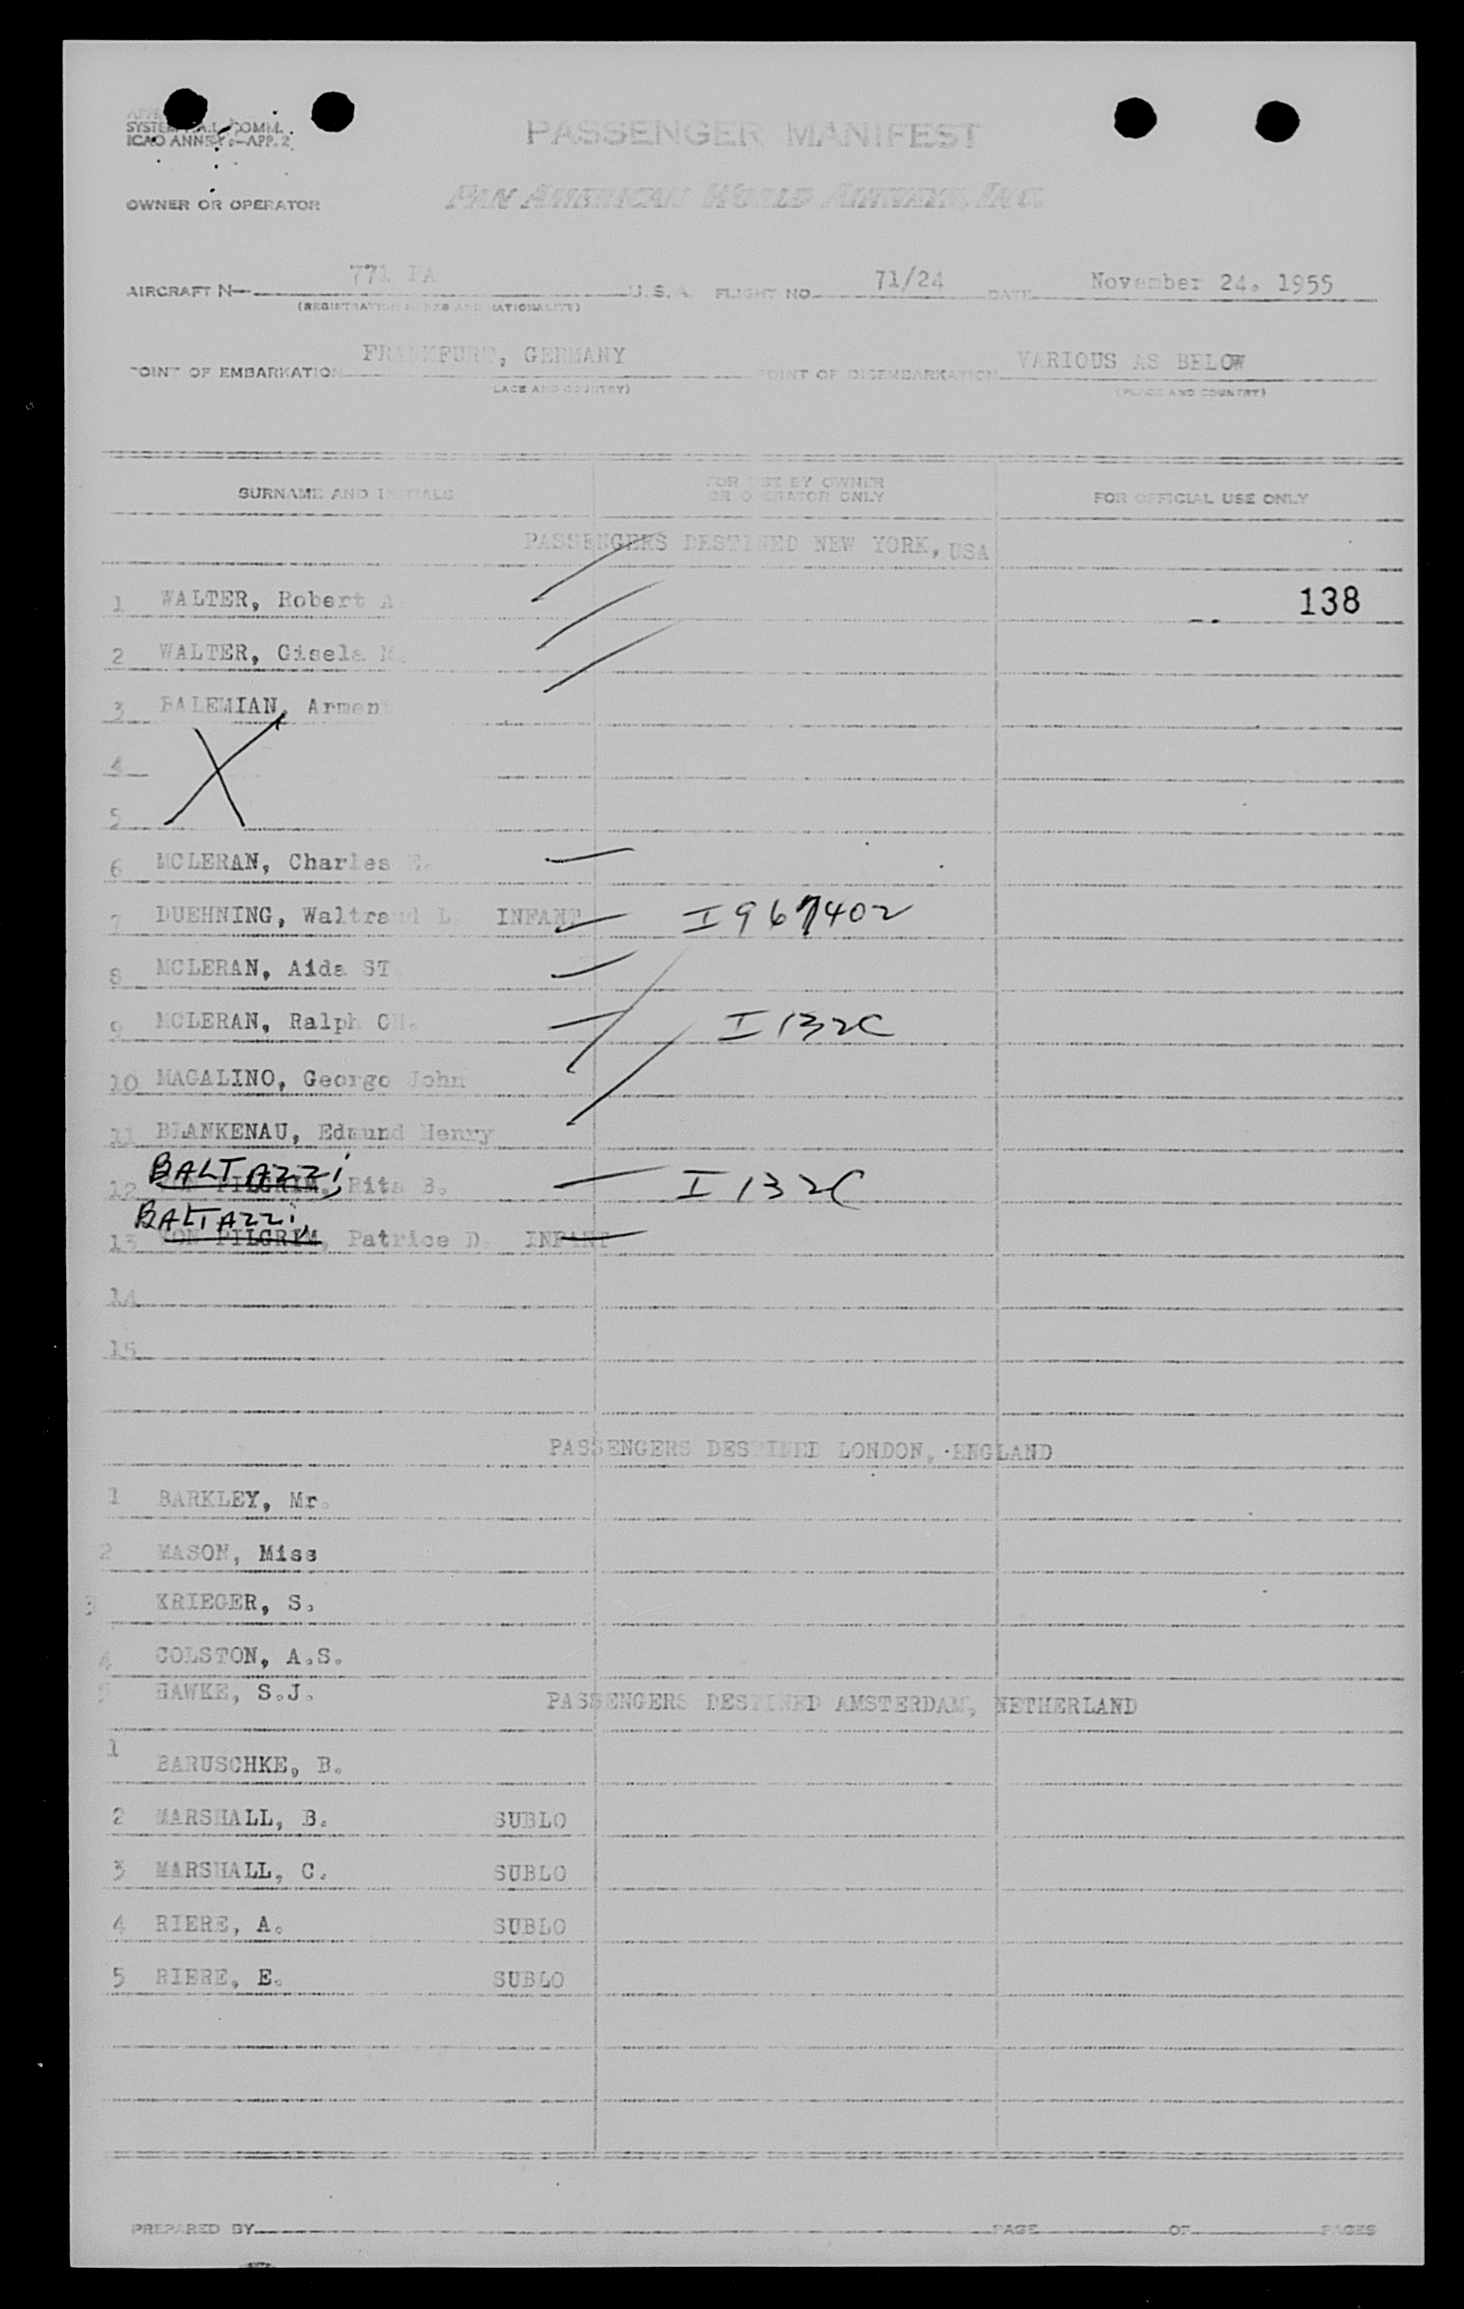 SYSTEM F.A.L. COMM.
ICAO ANNEX 9—APP. 2
PASSENGER MANIFEST
OWNER OR OPERATOR PAN AMERICAN WORLD AIRWAYS, INC.
AIRCRAFT N— 771 PA U.S.A. FLIGHT NO. 71/24 DATE November 24. 1955
(REGISTRATION MARKS AND NATIONALITY)
POINT OF EMBARKATION FRANKFURT, GERMANY POINT OF DISEMBARKATION VARIOUS AS BELOW
(PLACE AND COUNTRY) (PLACE AND COUNTRY)
SURNAME AND INITIALS FOR USE BY OWNER OR OPERATOR ONLY FOR OFFICIAL USE ONLY
PASSENGERS DESTINED NEW YORK, USA
1 WALTER, Robert A 138
2 WALTER, Gisela M.
3 BALEMIAN, Armen
4
5
6 MCLERAN, Charles E.
7 DUEHNING, Waltraud L INFANT I967402
8 MCLERAN, Aida ST
9 MCLERAN, Ralph CH. I132C
10 MAGALINO, George John
11 BLANKENAU, Edmund Henry
BALTAZZI,
12 VON PILGRIM, Rita B. I132C
BALTAZZI,
13 VON PILGRIM, Patrice D. INFANT
14
15
PASSENGERS DESTINED LONDON, ENGLAND
1 BARKLEY, Mr.
2 MASON, Miss
3 KRIEGER, S.
4 COLSTON, A.S.
5 HAWKE, S.J.
PASSENGERS DESTINED AMSTERDAM, NETHERLAND
1 BARUSCHKE, B.
2 MARSHALL, B. SUBLO
3 MARSHALL, C. SUBLO
4 RIERE, A. SUBLO
5 RIERE, E. SUBLO
PREPARED BY PAGE OF PAGES